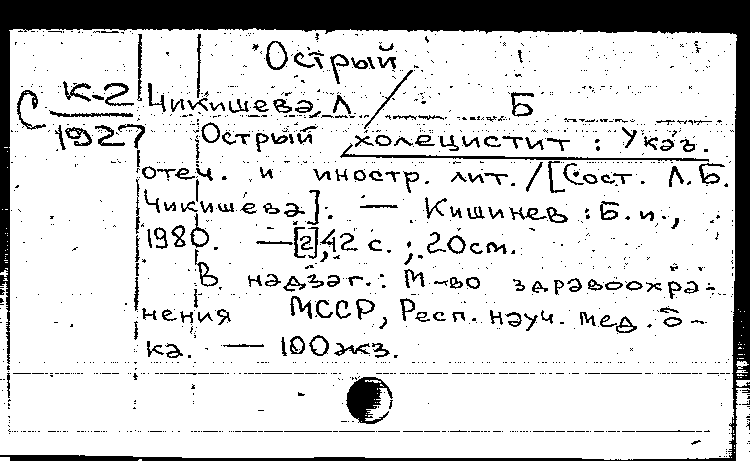 Острый
С К-2
1927
Чикишева, Л Б
Острый холецистит : Указ.
отеч. и иностр. лит. / [Сост. Л.Б.
Чикишева]. — Кишинев : Б.и.,
1980. — [2], 42 с. ; 20 см.
В надзаг.: М-во здравоохра-
нения МССР, Респ. науч. мед. б-
ка. — 100 экз.